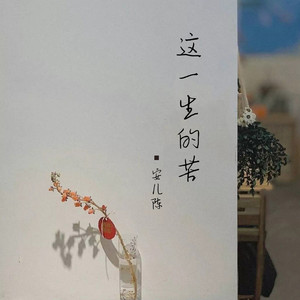 这一生的苦
■安儿陈